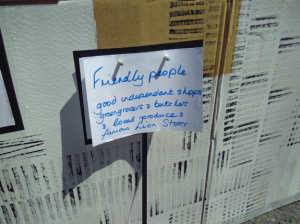 Friendly people
good independant shops
greengrocers & butchers
& local produce &
Lion Street